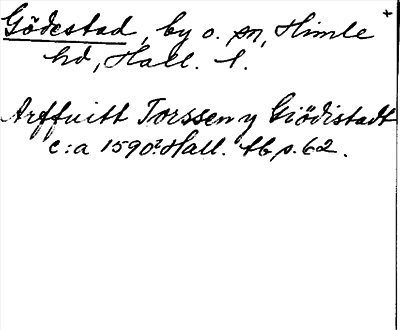 Gödestad, by o. sn, Himle +
hd, Hall. l.
Arffuitt Torssen y Giödistadt
c:a 1590? Hall. tb p. 62.